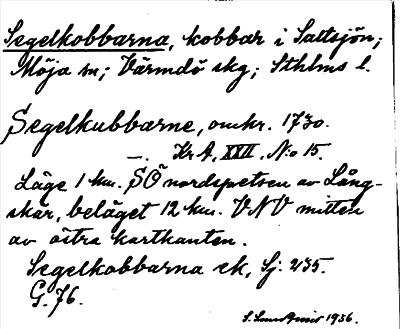 Segelkobbarna, kobbar i Saltsjön;
Möja sn; Värmdö skg; Sthlms l.
Segelkubbarne, omkr. 1730.
—. Kr A, XXII, N:o 15.
Läge 1 km. SÖ nordspetsen av Lång-
skär, beläget 12 km. VNV mitten
av östra kartkanten.
Segelkobbarna ek, Sj. 235.
G. 76.
1936.